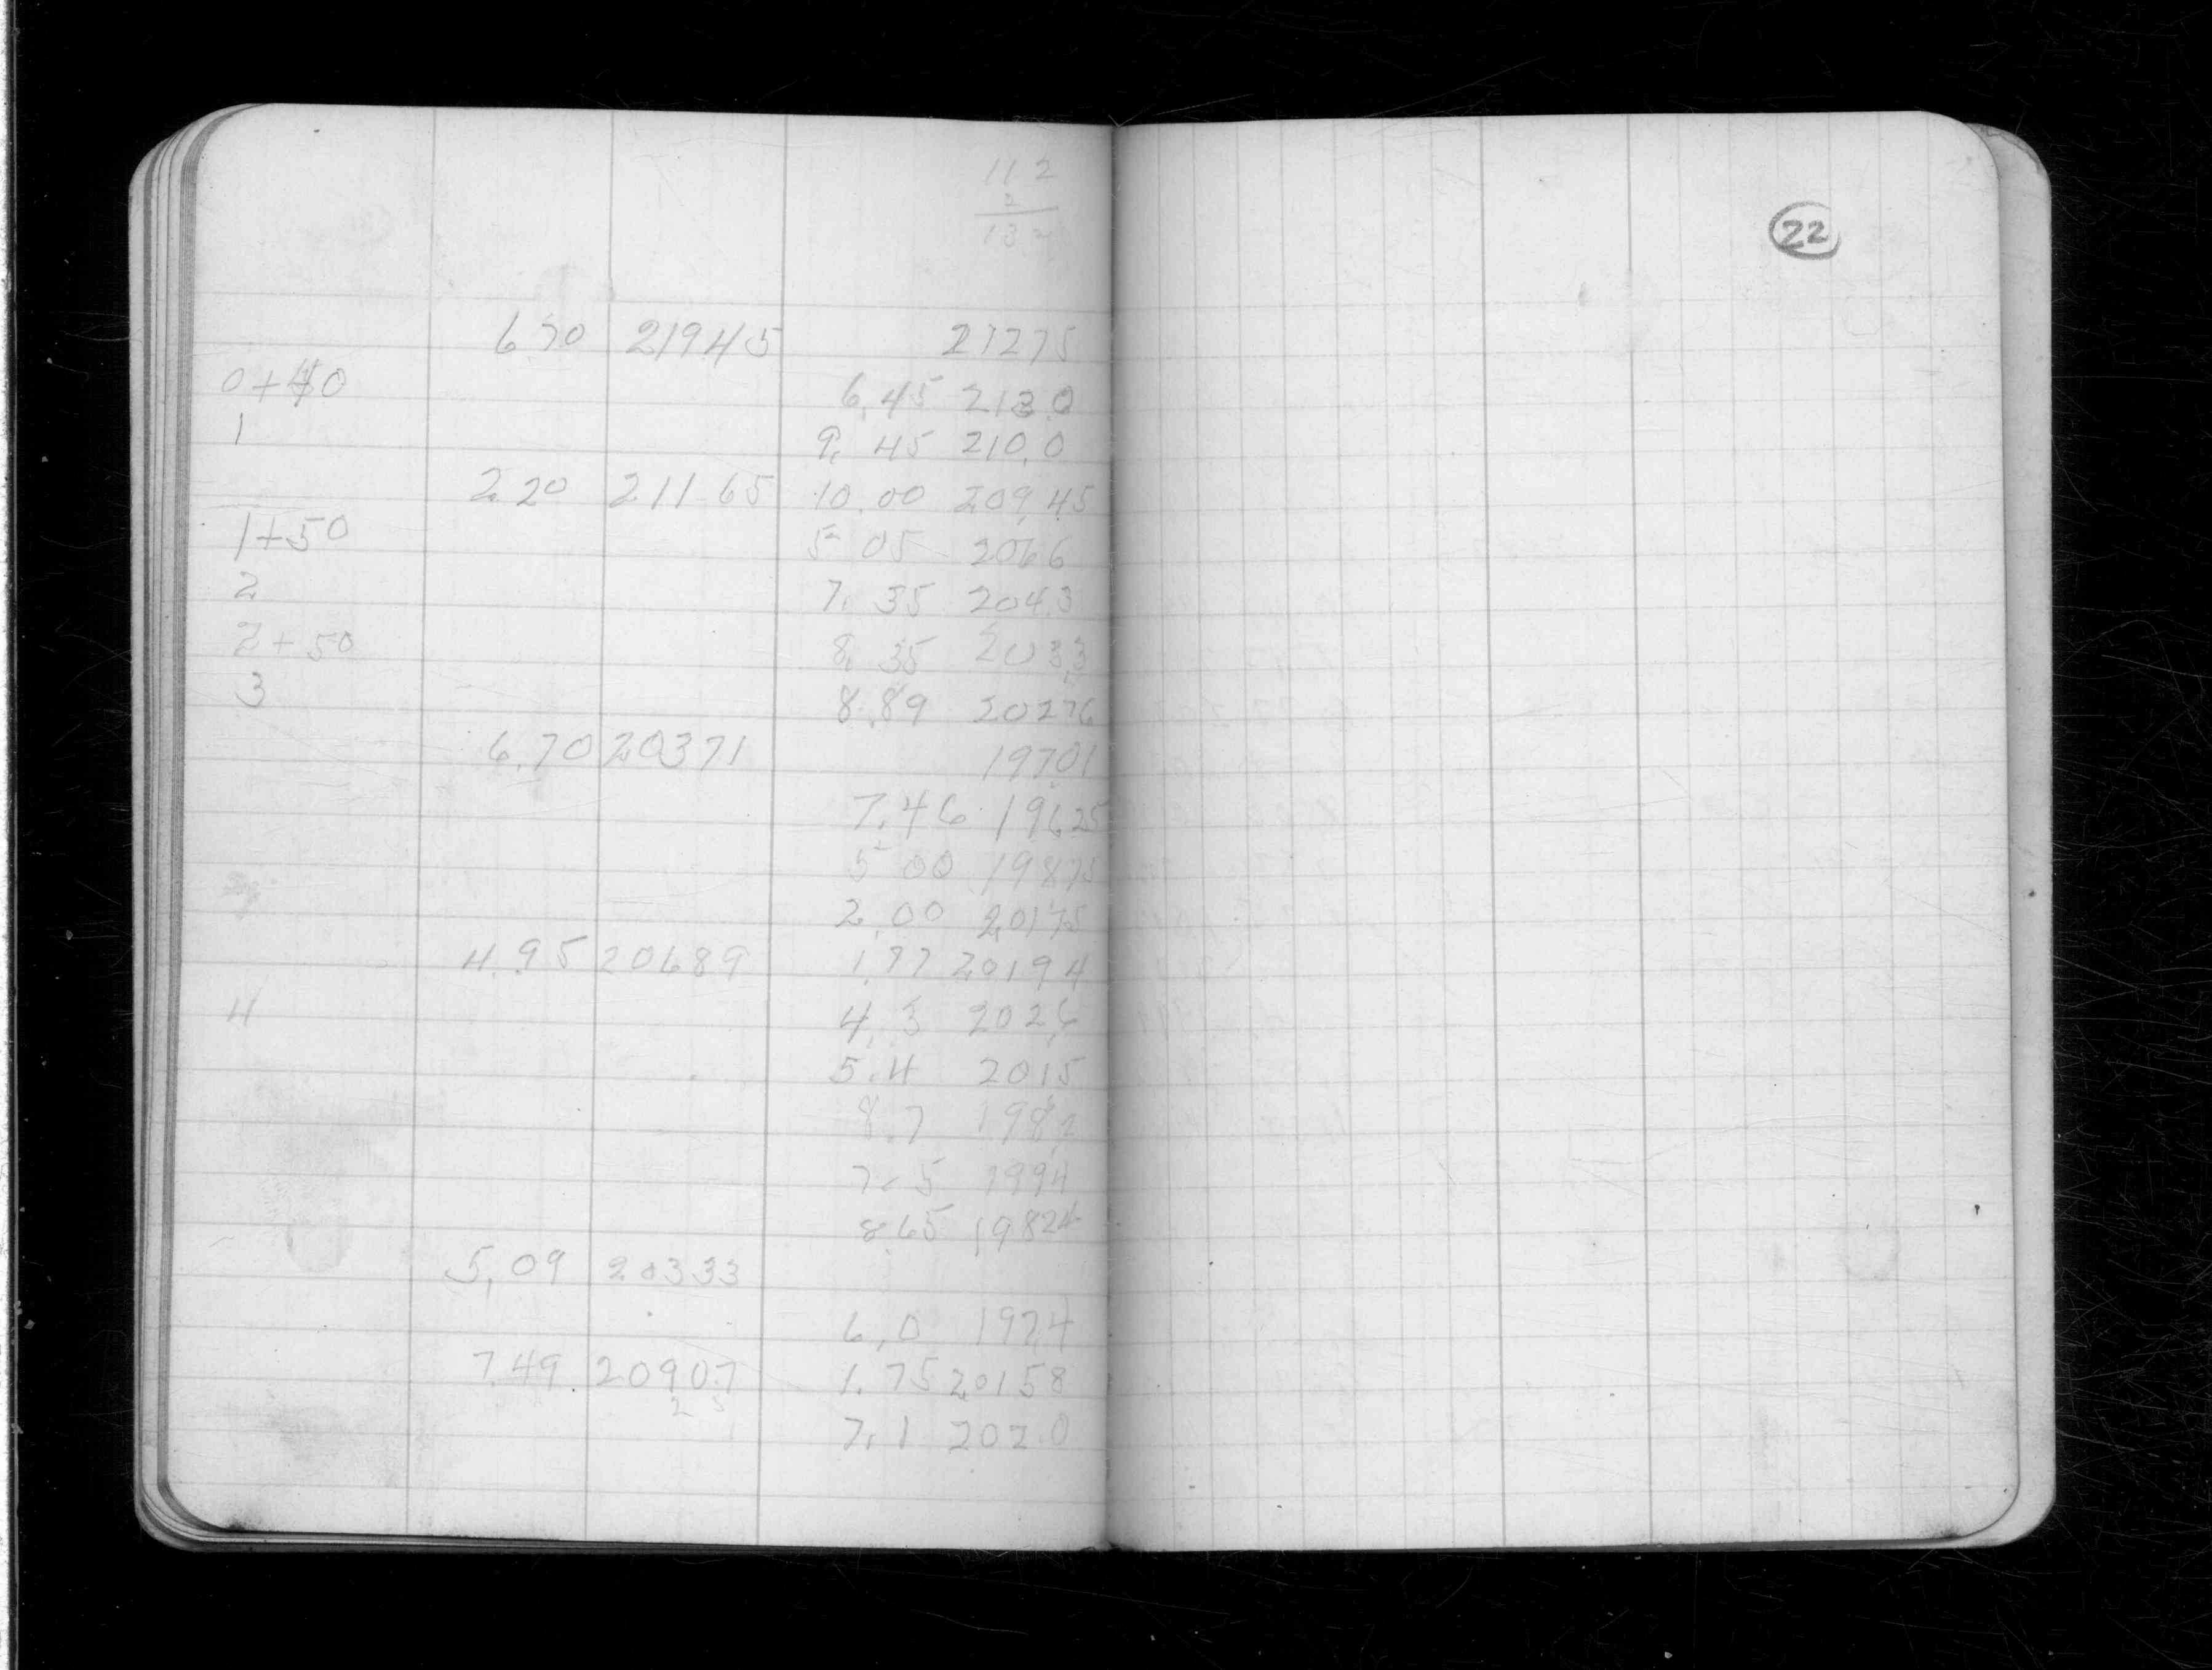 112
2
22
6.70 21945 21275
0+40 6.45 213.0
1 9.45 210.0
2.20 21165 10.00 209.45
1+50 5 05 2066
2 7.35 204.3
2+50 8.35 203.3
3 8.89 20276
6.70 20371 19701
7.46 19625
5 00 19875
2.00 20175
4.95 20689 1.77 20194
4 4.3 2026
5.4 2015
8.7 1982
7.5 1994
8 65 19824
5,09 20333
6.0 1974
7.49 20907 1.75 20158
7.1 202.0